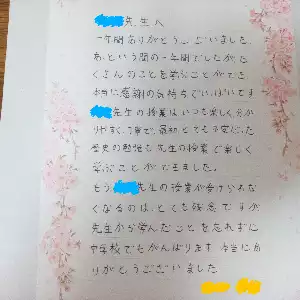 先生へ
一年間ありがとうございました。
あっという間の一年間でしたがた
くさんのことを学ぶことができ
本当に感謝の気持ちでいっぱいです
先生の授業はいつも楽しく分か
りやすく、丁寧で、最初とても不安だった
歴史の勉強も先生の授業で楽しく
学ぶことができました。
もう先生の授業が受けられな
くなるのは、とても残念ですが
先生から学んだことを忘れずに
中学校でもがんばります 本当にあ
りがとうございました